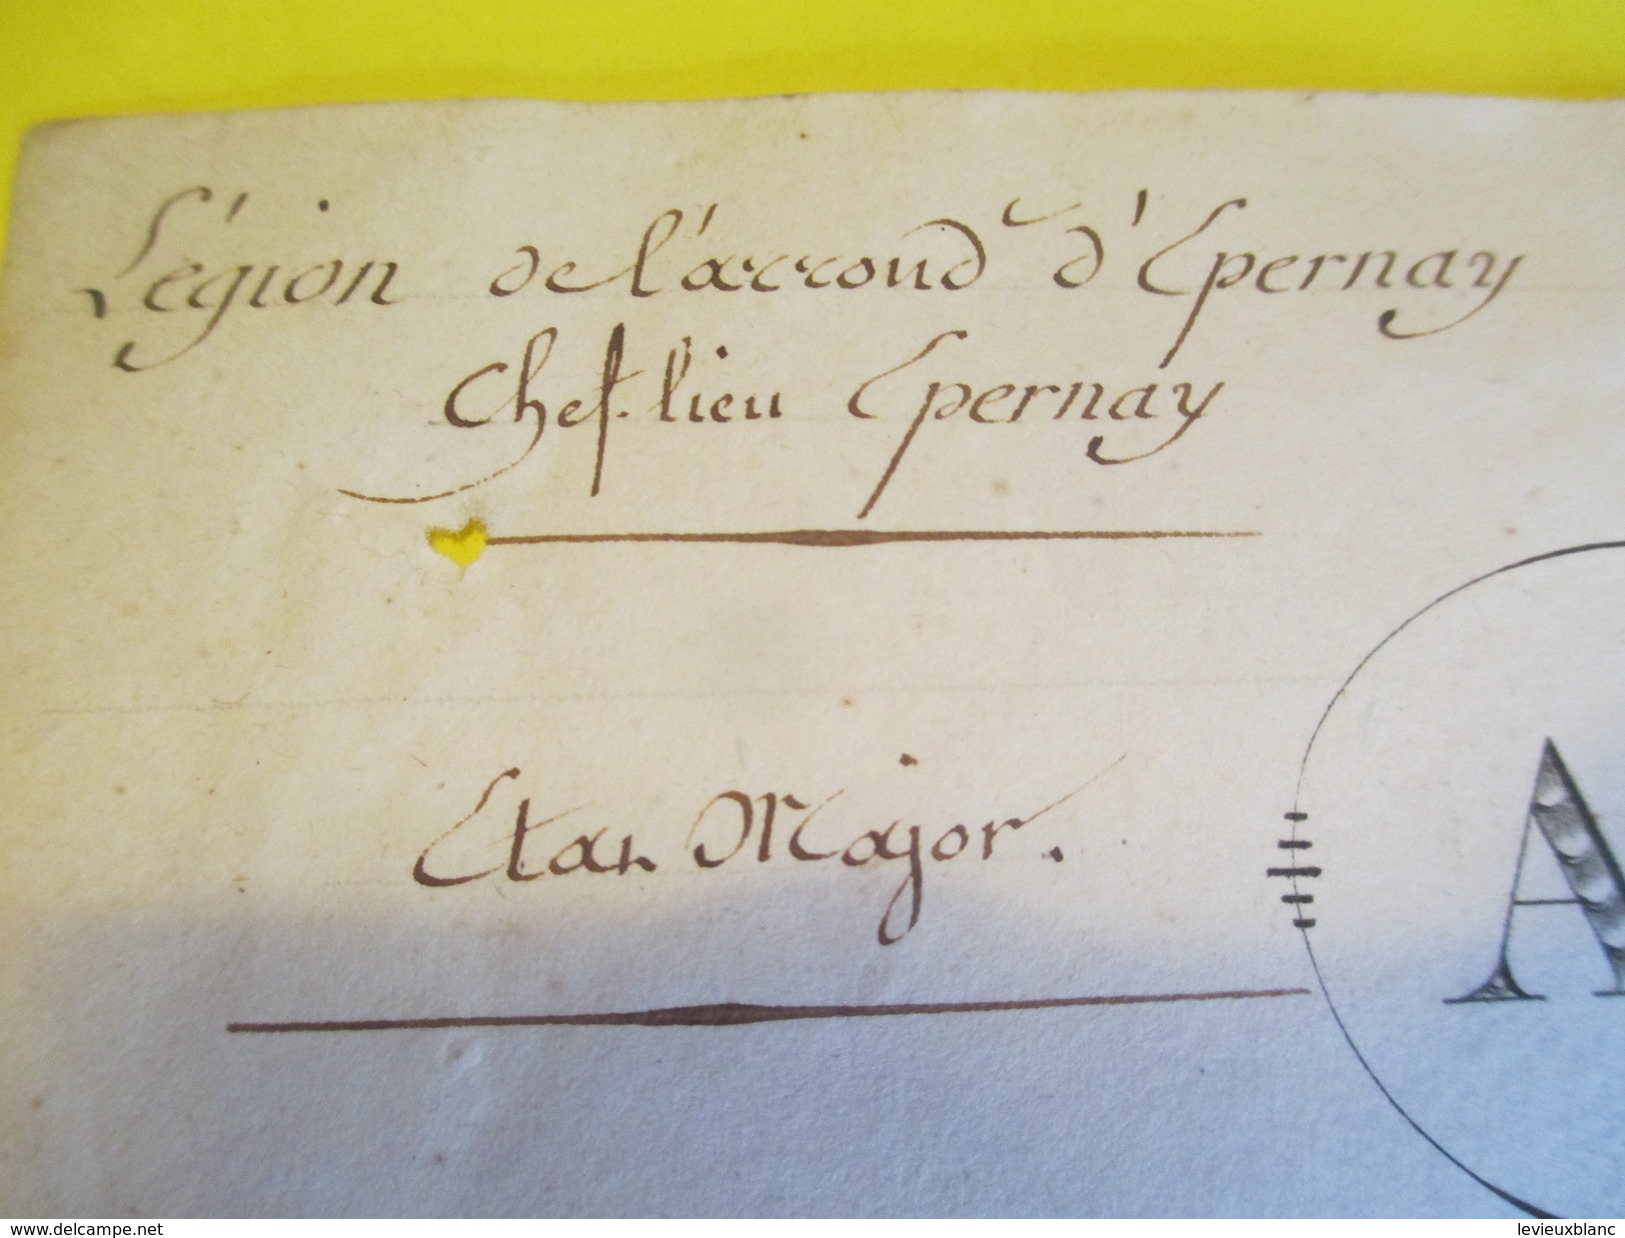 Légion de l'arrond^t d'Epernay
Chef-lieu Epernay
Etat Major.
A
www.delcampe.net
levieuxblanc